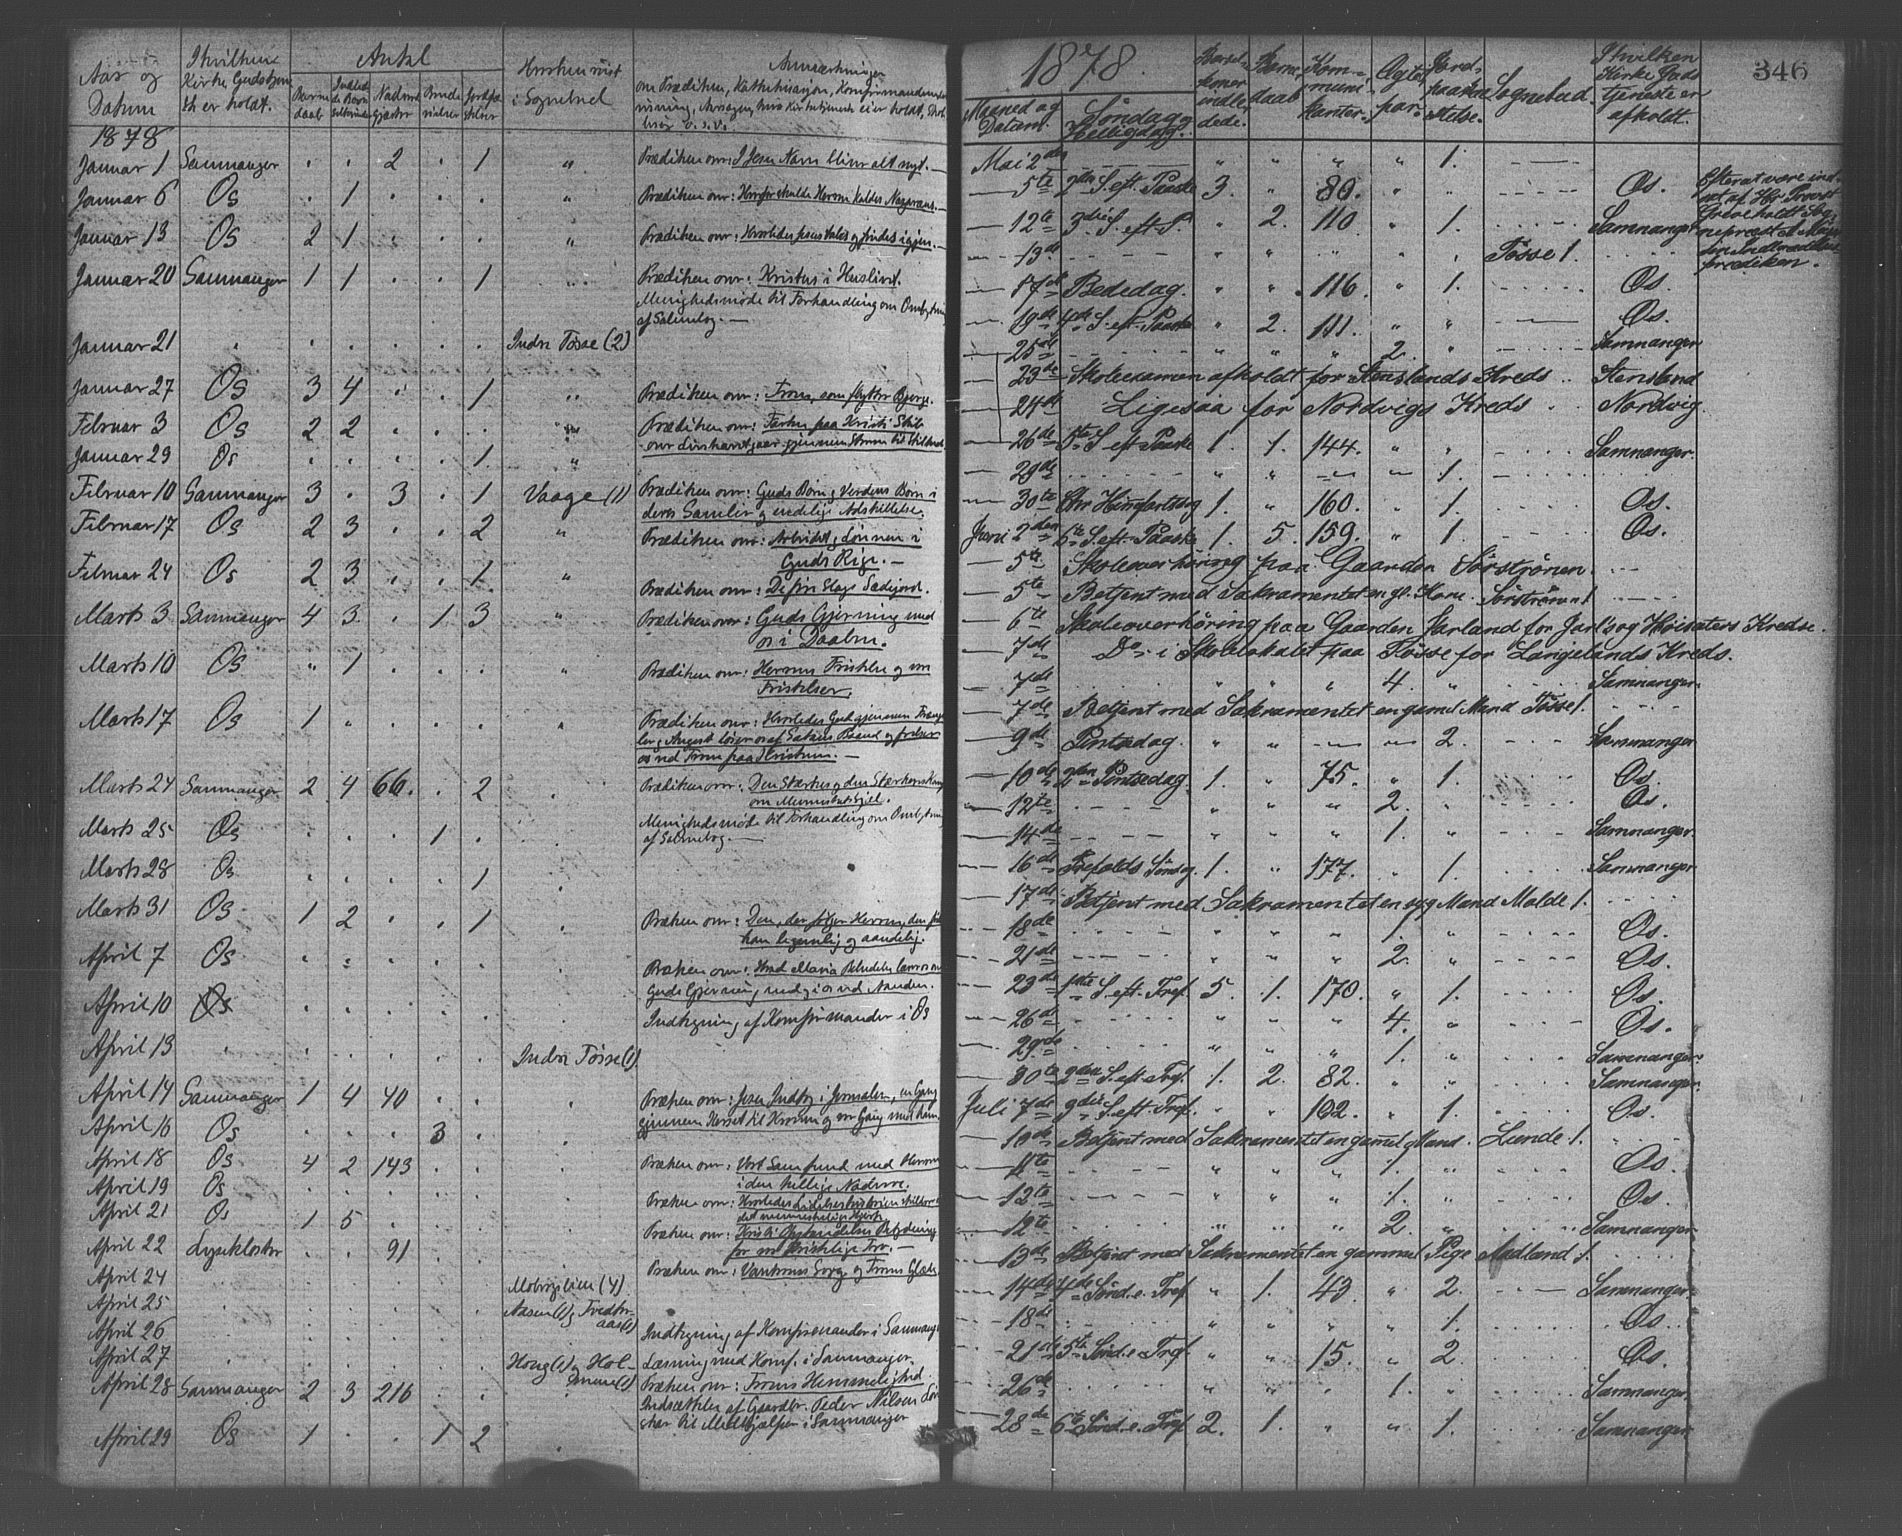 Aar og Datum
I hvilken Kirke Gudstjeneste er holdt.
Antal
Barnedaab
Nadverdgjæster
Hvorhen reist i Sognebud
Anmærkninger
om Prædiken, Katekisation, Konfirmandundervisning, Aarsagen, hvis Gudstjeneste ei er holdt
1878
Januar 1 Samnanger . . 2 . 1 " Prædiken over: I Jesu Navn bliver alt nyt.
Januar 6 Os . 1 . . . Prædiken over: Hvorfor skulde Herren kaldes Nazaræus.
Januar 13 Os 2 1 . . . " Prædiken over: Hvorledes Jesus tabes og findes igjen.
Januar 20 Samnanger 1 1 . . 1 " Prædiken over: Kristus i Huslivet.
Menighedsmøde til Forhandling om Ombytning
af Salmebog.
Januar 21 . . . . . . Indre Tøsse (2)
Januar 27 Os 3 4 . . 1 " Prædiken over: Troen, som flytter Bjerge.
Februar 3 Os 2 2 . . . " Prædiken over: Farten paa Kristi Skib
over Livshavet gaar gjennem Storm til Stilhed
Januar 29 Os . . . . 1 "
Februar 10 Samnanger 3 . 3 . 1 Vaage (1) Prædiken over: Guds Børn og Verdens Børn i
deres Samliv og endelige Adskillelse.
Februar 17 Os 2 3 . . 2 " Prædiken over: Arbeidet og Lønnen i
Guds Rige.
Februar 24 Os 2 3 . . 1 " Prædiken over: De fire Slags Sædejord.
Marts 3 Samnanger 4 3 . 1 3 " Prædiken over: Guds Gjerning med
os i Daaben.
Marts 10 Os " 1 . . . " Prædiken over: Herrens Fristelse og vore
Fristelser
Marts 17 Os 1 . . . . " Prædiken over: Hvorledes Gud gjennem Trængsler
og Angest løser os af Satans Baand og frelser
os ved Troen paa Kristum.
Marts 24 Samnanger 2 4 66 . 2 . Prædiken over: Den Stærke og den Stærkeres Kamp
om Menneskets Sjæl.
Menighedsmøde til Forhandling om Ombytning
af Salmebog.
Marts 25 Os . . . 1 . .
Marts 28 Os . . . . 1 .
Marts 31 Os 1 2 . . 1 . Præken over: Den, der følger Herren, den føder
han legemlig og aandelig.
April 7 Os . . . . . . Præken over: Hvad Maria Bebudelse lærer os om
Guds Gjerning med og i os ved Aanden.
April 10 Os . . . . . . Indtegning af Konfirmander i Os
April 13 . . . . . . Indre Tøsse (1)
April 14 Samnanger 1 4 40 . . . Præken over: Jesu Indtog i Jerusalem, en Gang
gjennem Korset til Kronen og en Gang med ham.
April 16 Os . . . 3 . .
April 18 Os 4 2 143 . . . Præken over: Vort Samfund med Herren
i den hellige Nadvere.
April 19 Os . . . . . . Præken over: Hvorledes Lidelseshistorien skildrer
det menneskelige Hjerte
April 21 Os 1 5 . . . Præken over: Kristi Opstandelses Betydning
for vor kristelige Tro.
April 22 Lyseklostr . . 91 . . Præken over: Vantroens Sorg og Troens Glæde
April 24 (4)
April 25 Aasen (1) og
April 26 Indtegning af Konfirmander i Samnanger
April 27 Læsning med Konf. i Samnanger.
April 28 Samnanger 2 3 216 . . Præken over: Troens Hemmelighed
Indsættelse af Gaardbr. Peder Nilsen
til Medhjælper i Samnanger
April 29 Os 1 . . 1 2 .
1878.
346
Maaned og Datum.
Søndag og Helligdag.
Barselkoner indledede.
Børnedaab.
Kommunikanter.
Ægtepar.
Jordpaakastelse.
Sognebud.
I hvilken Kirke Gudstjeneste er afholdt.
Mai 2den " " " " 1.
5te 2den S. eft. Paaske 3. " 80. " " Os.
Efter at være indsat af Hr. Provst Grove holdt Sognepræst Indtrædelsesprædiken.
12te 3die S. eft. P. " 2. 110 " 1. Samnanger
13de " " " " " Tøsse 1.
17de Bededag. " " 116. " 1. Os.
19de 4de S. eft. Paaske " 2. 111. " " Os.
25de " 2. " Samnanger
23de Skoleexamen afholdt for Stenslands Kreds Stensland
24de Ligesaa for Nordvigs Kreds. Nordvig.
26de 5te S. eft. Paaske 1. 1. 144. " " Samnanger.
29de " " 1.
30te Chr. Himmelfartsdag 1. " 160. " 1. Os.
Juni 2den 6te S. eft. Paaske 1. 5. 159. " 1. Os.
5te Skoleoverhøring paa Gaarden Sørstrønen.
5te Betjent med Sakramentet en gl. Kone. Sørstrønen 1
6te Skoleoverhøring paa Gaarden Jarland for Jarls og Høisæters Kredse.
7de Do. i Skolelokalet paa Tøsse for Langelands Kreds.
7de " " " 4. " Samnanger.
7de Betjent med Sakramentet en gamel Mand Tøsse 1.
9de Pintsedag. " " 2. Samnanger
10de 2den Pintsedag 1. " 75. " 1. Os.
12te " " " 2. Os.
14de " " " 1. " Samnanger.
16de Trefolds Sønd. 1. " 177. . 1. Samnanger
17de Betjent med Sakramentet en syg Mand Malde 1.
18de " " " 1. Os.
21de " " " 2. Os.
23de 1ste S. eft. Tref. 5. 1. 170. " 1. Os.
26de " " " 4. " Os.
29de " " " 1. " Samnanger.
30te 2den S. eft. Tref. 1. 2. 82. " " Samnanger.
Juli 7de 3die S. eft. Tref. " " 102. " 1. Os.
10de Betjent med Sakramentet en gamel Mand. Lunde 1.
11te " " " 1. " Os.
12te " " " 1. " Os.
12te " " " 2. " Samnanger
13de Betjent med Sakramentet en gammel Pige Aadland 1.
14de 4de Sønd. e. Tref. " 1. 43. " 2. Samnanger.
18de " " " " 1. Os.
21de 5te Sønd. e. Tref. " " 15. " 2. Os.
26de " " " 1. " Samnanger.
28de 6te Sønd. e. Tref. 2. 1. " " 1. Samnanger